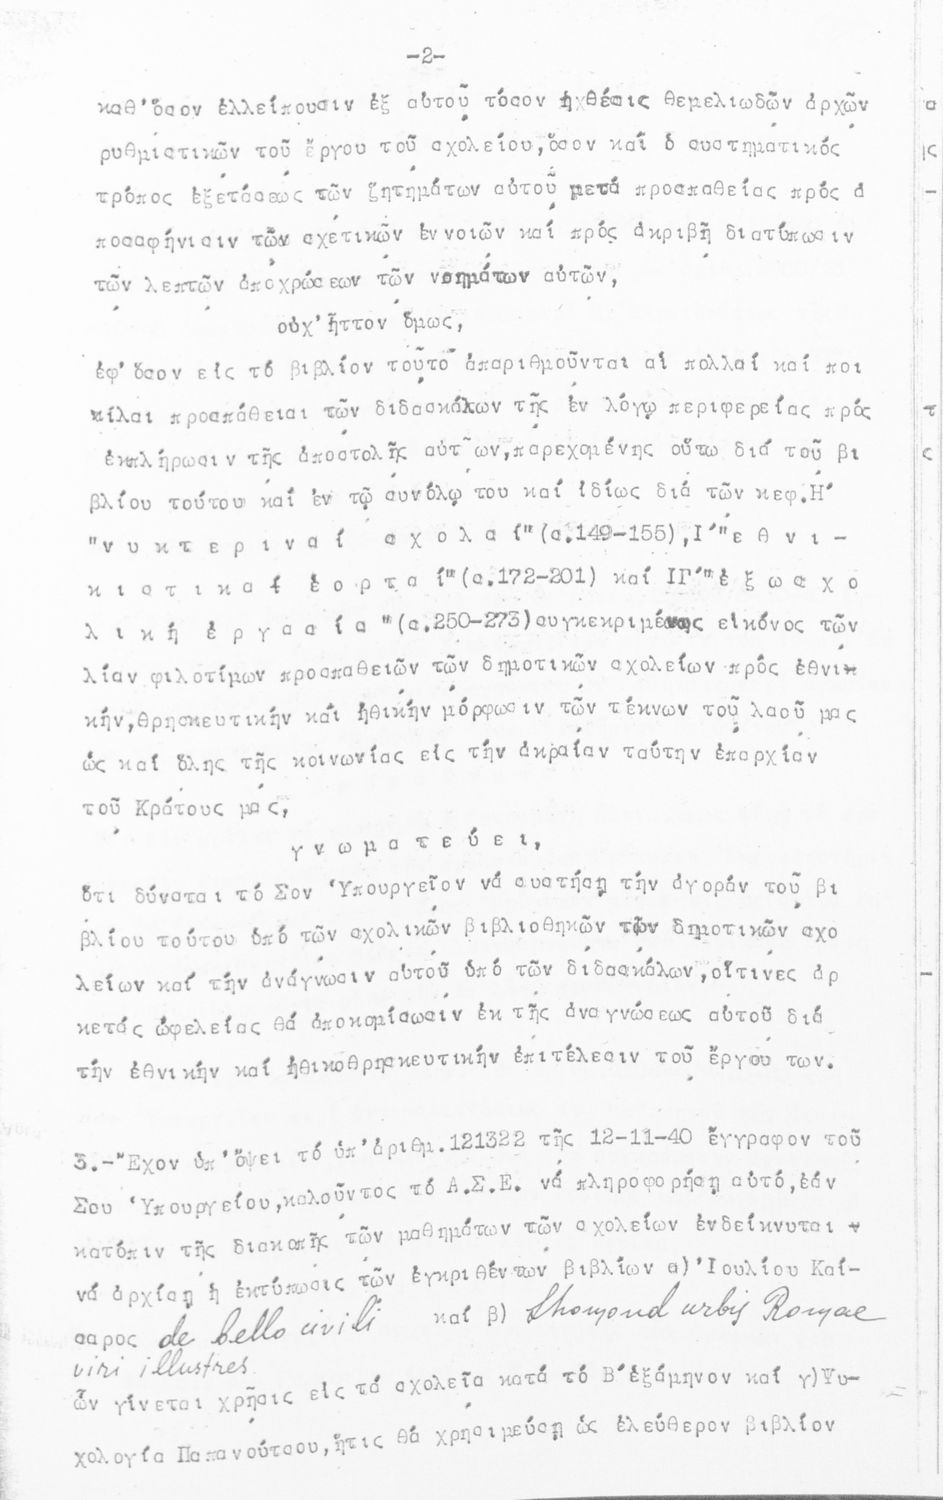 -2-
καθ'ὅσον ἐλλείπουσιν ἐξ αὐτοῦ τόσον ἡ ἔχθεσις θεμελιωδῶν ἀρχῶν
ρυθμιστικῶν τοῦ ἔργου τοῦ σχολείου, ὅσον καί ὁ συστηματικός
τρόπος ἐξετάσεως τῶν ζητημάτων αὐτοῦ μετά προσπαθείας πρός ἀ
ποσαφήνισιν τῶν σχετικῶν ἐννοιῶν καί πρός ἀκριβῆ διατύπωσιν
τῶν λεπτῶν ἀποχρώσεων τῶν νοημάτων αὐτῶν,
οὐχ'ἧττον ὅμως,
ἐφ'ὅσον εἰς τό βιβλίον τοῦτο ἀπαριθμοῦνται αἱ πολλαί καί ποι
κίλαι προσπάθειαι τῶν διδασκάλων τῆς ἐν λόγῳ περιφερείας πρός
ἐκπλήρωσιν τῆς ἀποστολῆς αὐτῶν, παρεχομένης οὕτω διά τοῦ βι
βλίου τούτου καί ἐν τῷ συνόλῳ του καί ἰδίως διά τῶν κεφ. Η'
"νυκτεριναί σχολαί" (σ.149-155), Ι' "ἐθνι-
κιστικαί ἑορταί" (σ.172-201) καί ΙΓ' "ἐξωσχο
λική ἐργασία" (σ.250-273) συγκεκριμένης εἰκόνος τῶν
λίαν φιλοτίμων προσπαθειῶν τῶν δημοτικῶν σχολείων πρός ἐθνικ
κήν, θρησκευτικήν καί ἠθικήν μόρφωσιν τῶν τέκνων τοῦ λαοῦ μας
ὡς καί ὅλης τῆς κοινωνίας εἰς τήν ἀκραίαν ταύτην ἐπαρχίαν
τοῦ Κράτους μας,
γνωματεύει,
ὅτι δύναται τό Σον Ὑπουργεῖον νά συστήσῃ τήν ἀγοράν τοῦ βι
βλίου τούτου ὑπό τῶν σχολικῶν βιβλιοθηκῶν τῶν δημοτικῶν σχο
λείων καί τήν ἀνάγνωσιν αὐτοῦ ὑπό τῶν διδασκάλων, οἵτινες ἀρ
κετάς ὠφελείας θά ἀποκομίσωσιν ἐκ τῆς ἀναγνώσεως αὐτοῦ διά
τήν ἐθνικήν καί ἠθικοθρησκευτικήν ἐπιτέλεσιν τοῦ ἔργου των.
3.-Ἔχον ὑπ'ὄψει τό ὑπ'ἀριθμ.121322 τῆς 12-11-40 ἔγγραφον τοῦ
Σου Ὑπουργείου, καλοῦντος τό Α.Σ.Ε. νά πληροφορήσῃ αὐτό, ἐάν
κατόπιν τῆς διακοπῆς τῶν μαθημάτων τῶν σχολείων ἐνδείκνυται
νά ἀρχίσῃ ἡ ἐκτύπωσις τῶν ἐγκριθέντων βιβλίων α) Ἰουλίου Καί-
σαρος de bello civili καί β) Lhomond urbis Romae
viri illustres
ὧν γίνεται χρῆσις εἰς τά σχολεῖα κατά τό Β' ἑξάμηνον καί γ) Ψυ-
χολογία Παπανούτσου, ἥτις θά χρησιμεύσῃ ὡς ἐλεύθερον βιβλίον